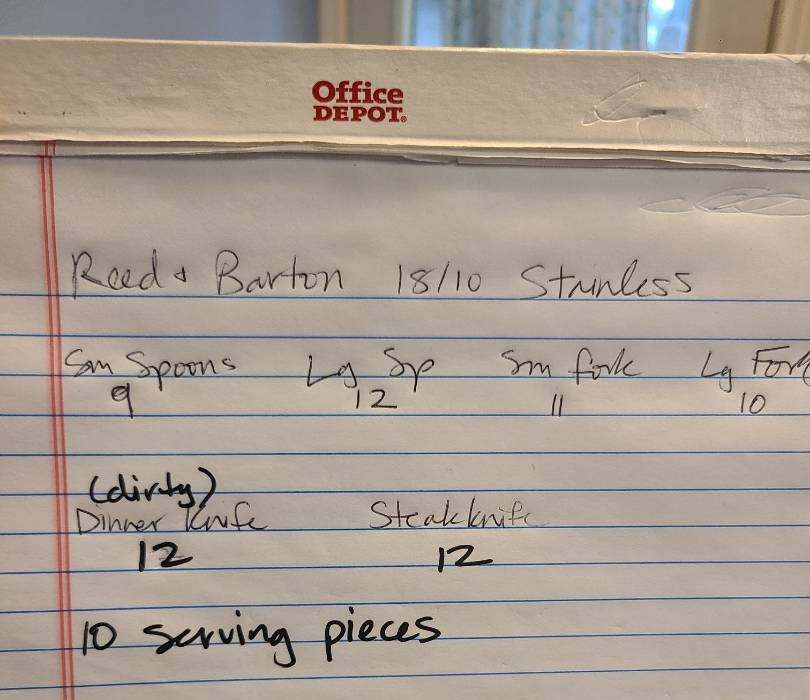 Office
DEPOT®
Reed & Barton 18/10 Stainless
Sm Spoons Lg Sp Sm fork Lg Fork
9 12 11 10
(dirty)
Dinner Knife Steak knife
12 12
10 serving pieces